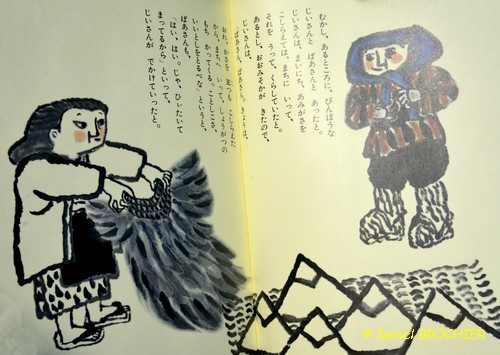 むかし、あるところに、びんぼうな
じいさんと ばあさんと あったと。
じいさんは、まいにち、あみがさを
こしらえては、まちに いって、
それを うって、くらしていたと。
あるとし、おおみそかが きたので、
じいさんは、
「ばあさん、ばあさん、きょうは、
おれ、かさを 五つも こしらえた
から、まちへ いって、しょうがつの
もち かってくる。ことしこそ、
いいとしをとるべな」というと、
ばあさんも、
「はい、はい。じゃ、ひぃたいて
まってるから」といって、
じいさんが でかけていったと。
© Daniel BROCHIER